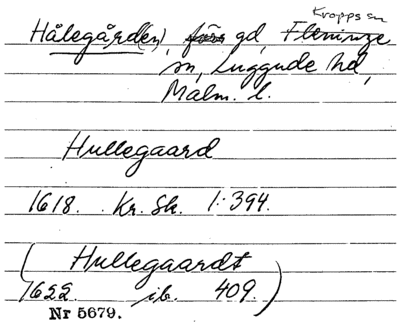 Kropps sn
Hålegård(en), förs gd, Fleninge
sn, Luggude hd,
Malm. l.
Hullegaard
1618. Kr. Sk. 1:394.
(Hullegaardt
1622 ib. 409.)
Nr 5679.